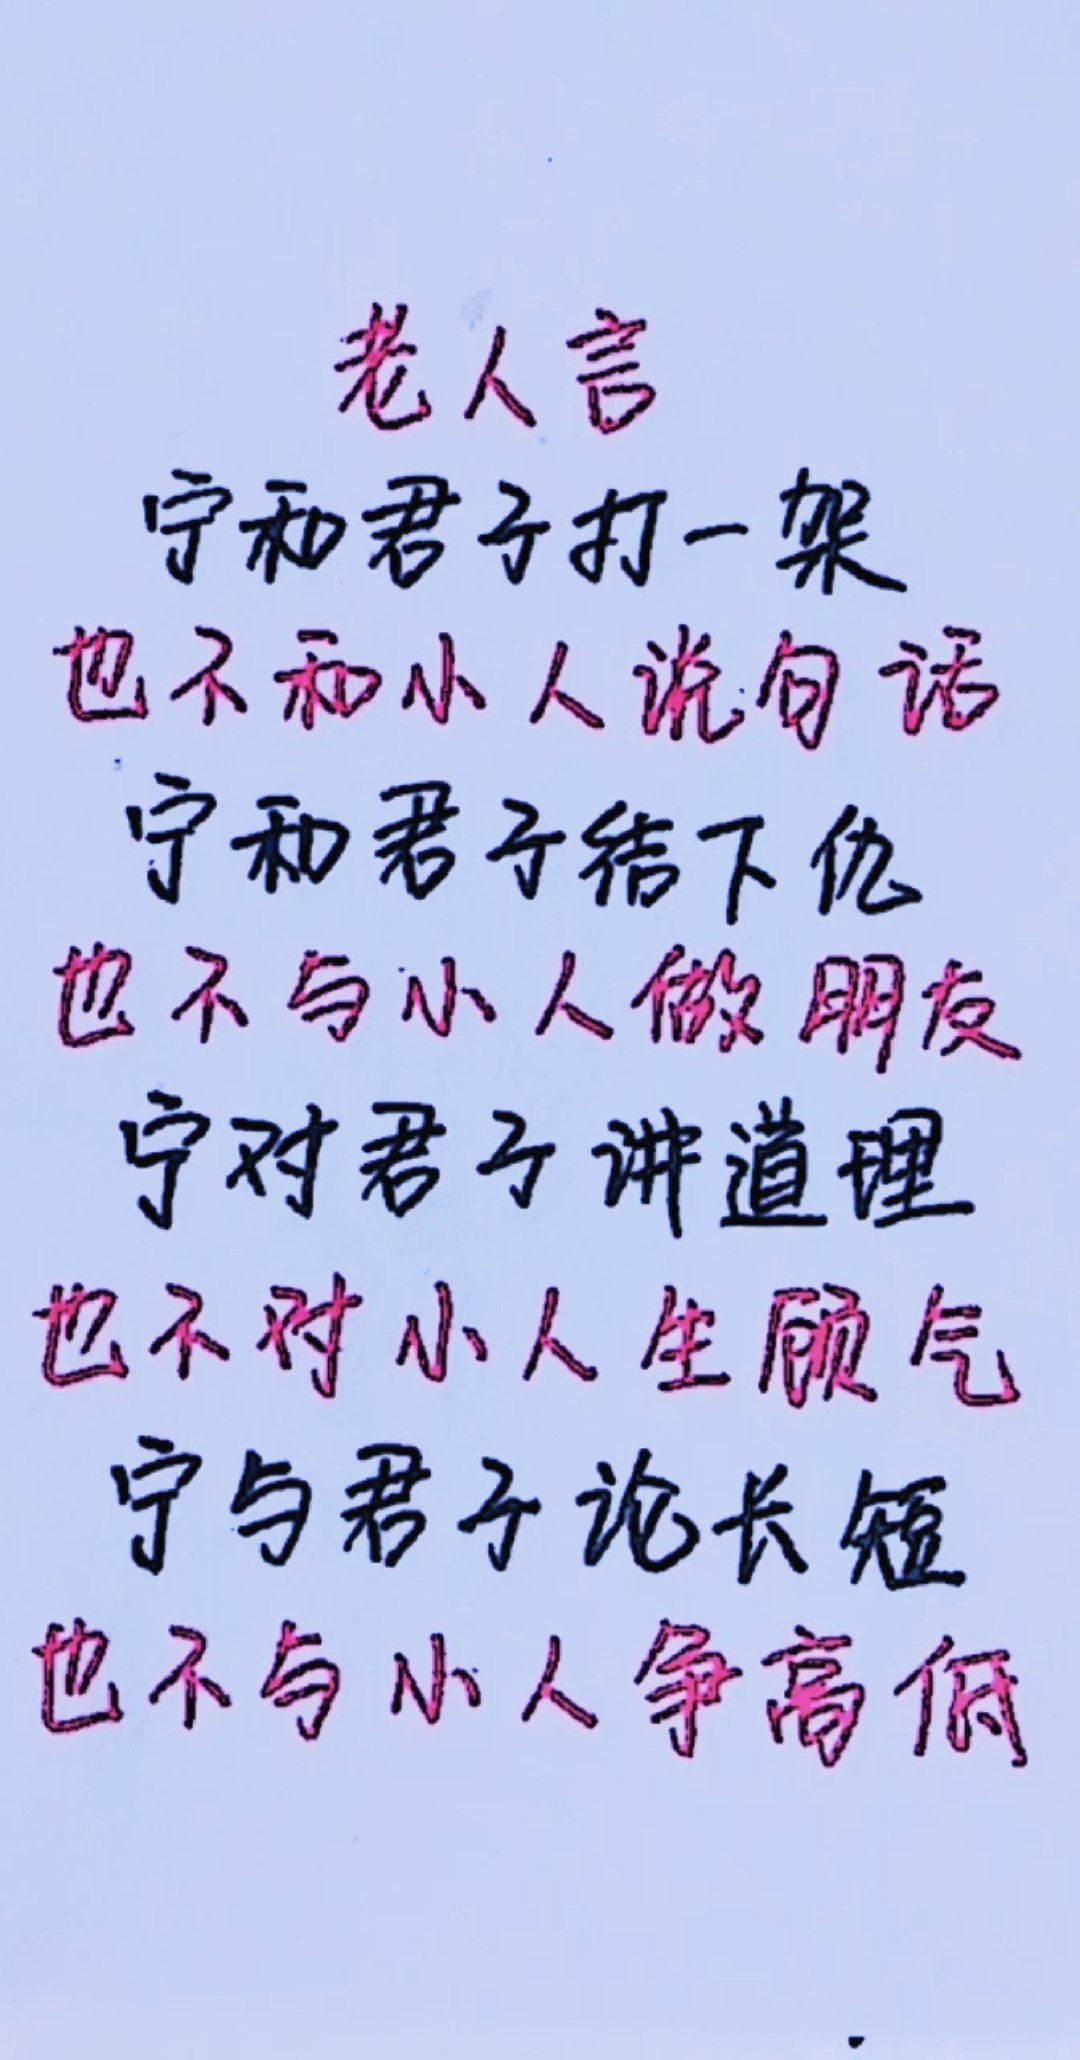 老人言
宁和君子打一架
也不和小人说句话
宁和君子结下仇
也不与小人做朋友
宁对君子讲道理
也不对小人生顾气
宁与君子论长短
也不与小人争高低